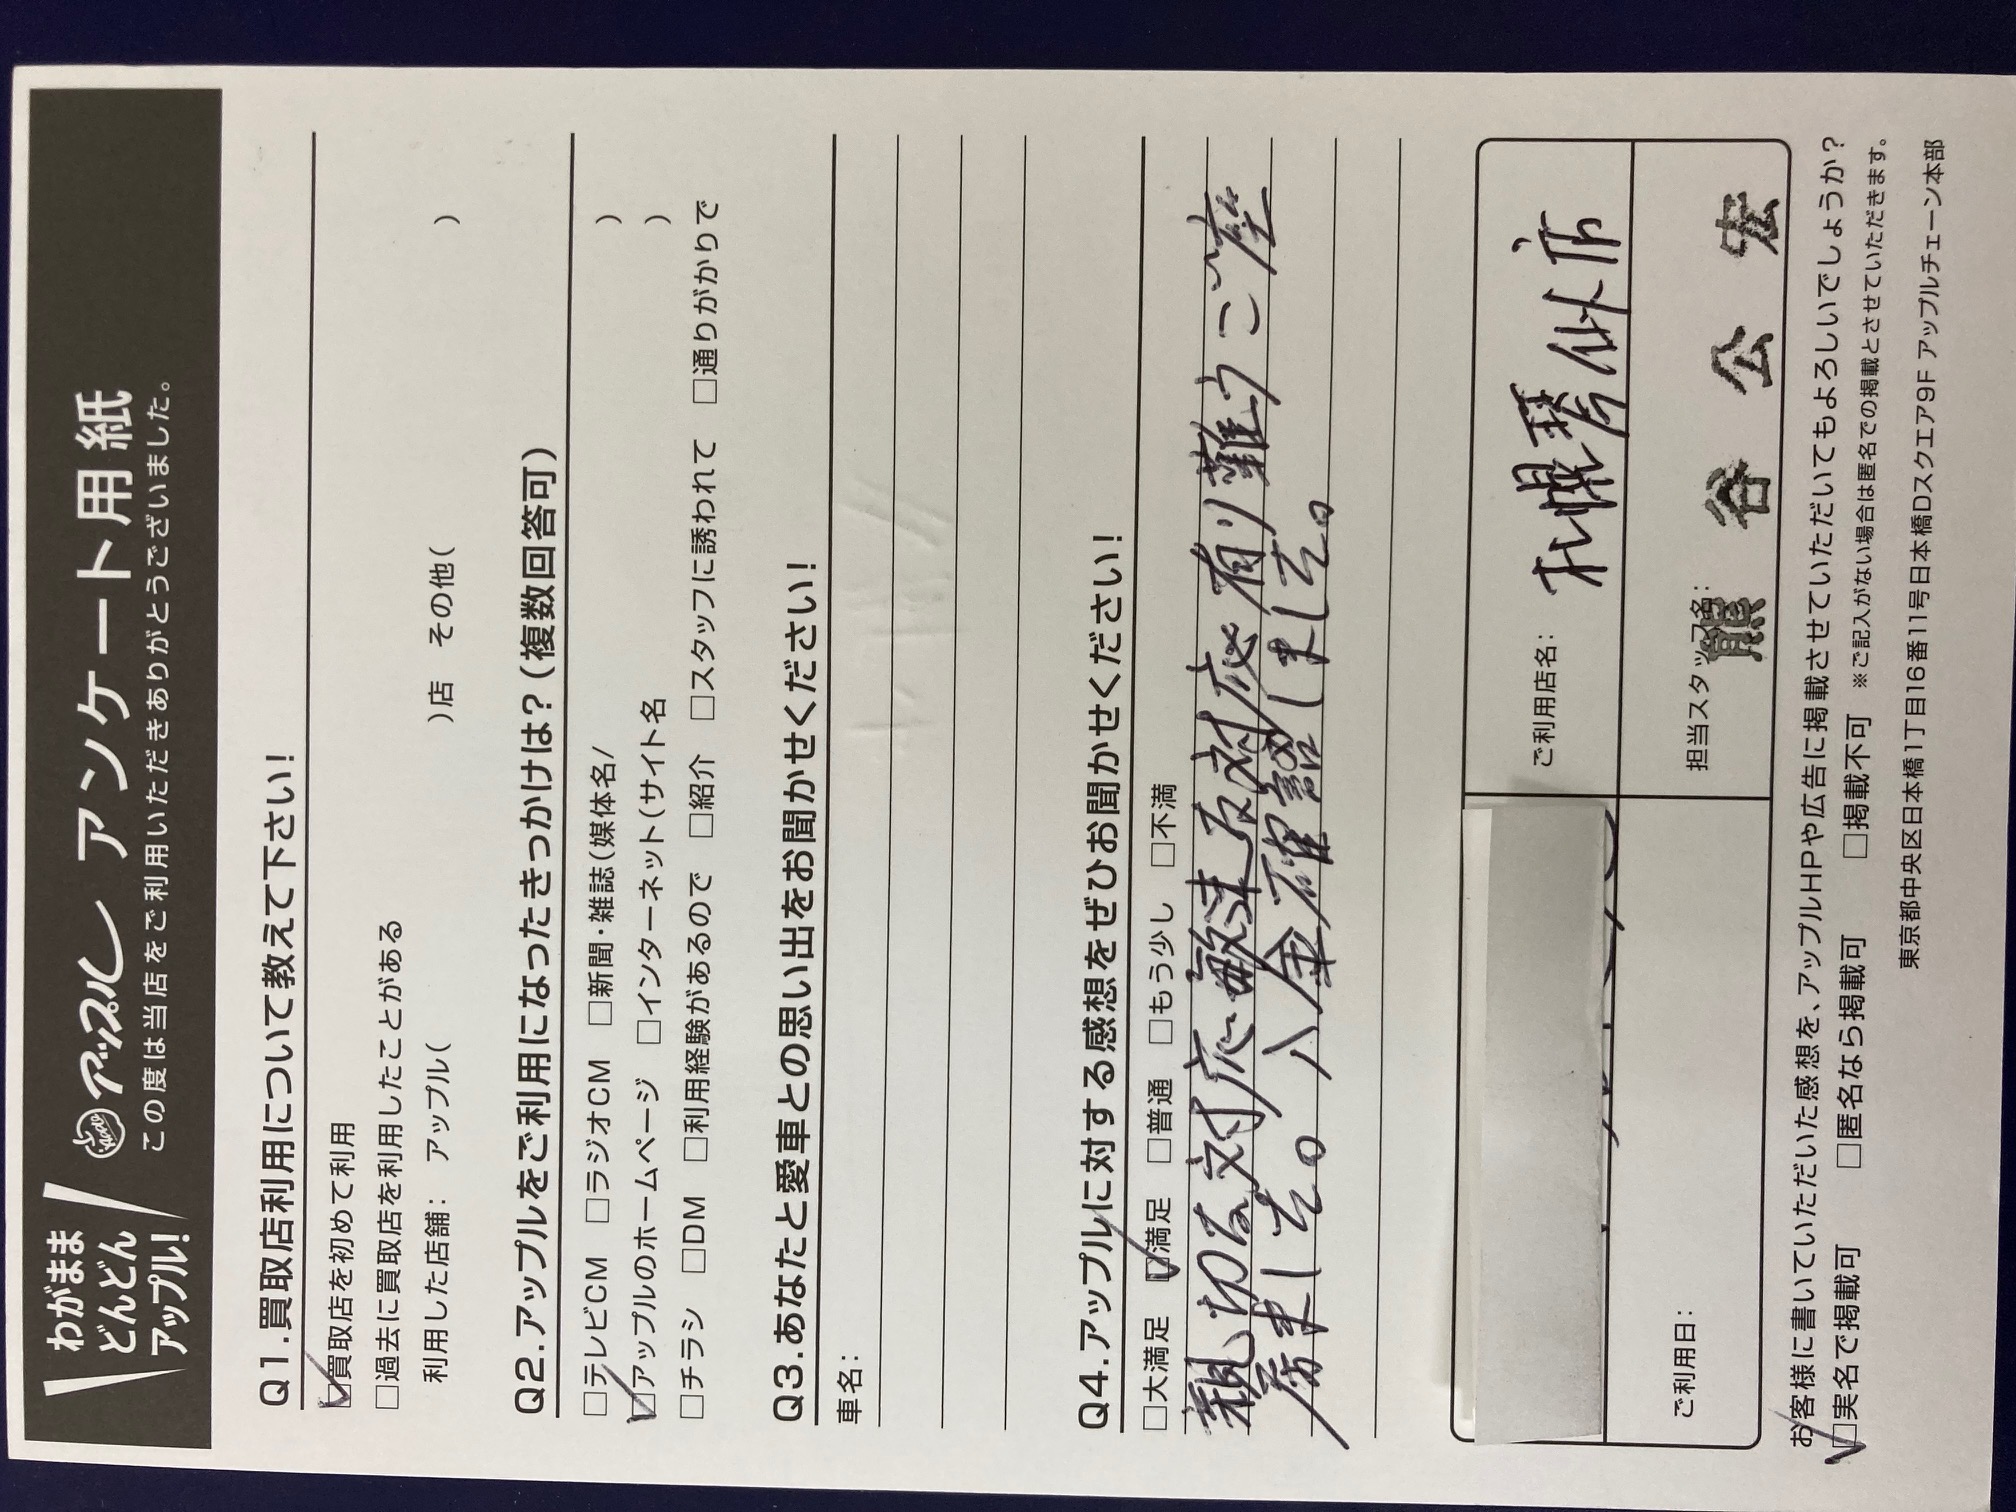 わがまま
どんどん
アップル!
アップル アンケート用紙
この度は当店をご利用いただきありがとうございました。
Q1.買取店利用について教えて下さい!
☑買取店を初めて利用
□過去に買取店を利用したことがある
利用した店舗: アップル( )店 その他( )
Q2.アップルをご利用になったきっかけは?(複数回答可)
□テレビCM □ラジオCM □新聞・雑誌(媒体名/ )
☑アップルのホームページ □インターネット(サイト名 )
□チラシ □DM □利用経験があるので □紹介 □スタッフに誘われて □通りがかりで
Q3.あなたと愛車との思い出をお聞かせください!
車名:
Q4.アップルに対する感想をぜひお聞かせください!
□大満足 ☑満足 □普通 □もう少し □不満
親切な対応、敏速な対応 有り難うご座
居ました。入金確認しました。
ご利用店名: 札幌琴似店
ご利用日:
担当スタッフ名: 熊谷公宏
お客様に書いていただいた感想を、アップルHPや広告に掲載させていただいてもよろしいでしょうか?
☑実名で掲載可 □匿名なら掲載可 □掲載不可 ※ご記入がない場合は匿名での掲載とさせていただきます。
東京都中央区日本橋1丁目16番11号日本橋Dスクエア9F アップルチェーン本部